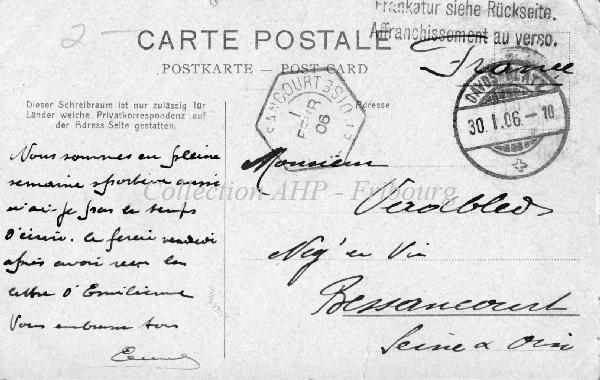 2-
Frankatur siehe Rückseite.
Affranchissement au verso.
CARTE POSTALE
France
POSTKARTE — POST CARD
Dieser Schreibraum ist nur zulässig für
Länder welche Privatkorrespondenz auf
der Adress-Seite gestatten.
Adresse
BESSANCOURT S.-ET-OISE
1
FEVR
06
DAVOS-PLATZ
30.I.06.-10
Nous sommes en pleine
semaine sportive aussi
n'ai-je pas le temps
d'écrire. Le ferai vendredi
après avoir reçu la
lettre d'Emilienne
Vous embrasse tous
Monsieur
Verdbled
Nég' en Vin
Bessancourt
Seine & Oise
Collection AHP - Fribourg